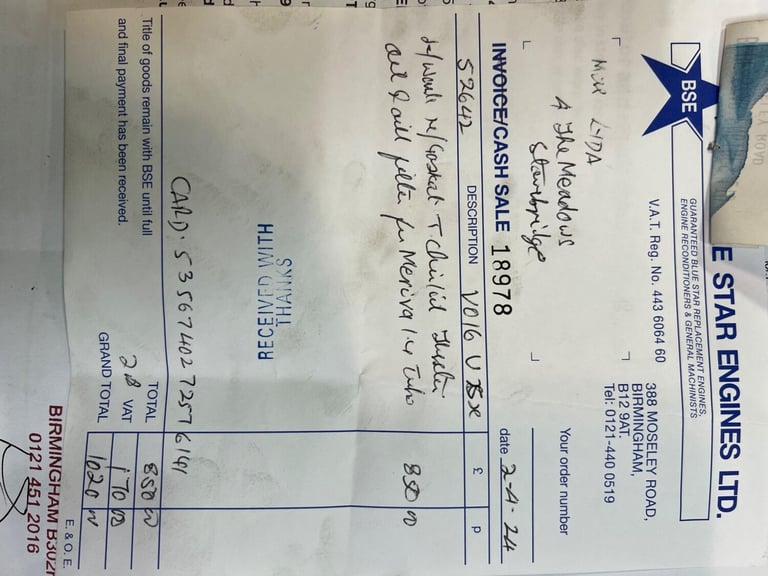 E STAR ENGINES LTD.
GUARANTEED BLUE STAR REPLACEMENT ENGINES.
ENGINE RECONDITIONERS & GENERAL MACHINISTS
BSE
V.A.T. Reg. No. 443 6064 60
388 MOSELEY ROAD,
BIRMINGHAM,
B12 9AT.
Tel: 0121-440 0519
LYDA
4 The Meadows
Stourbridge
Your order number
INVOICE/CASH SALE 18978
date 2-4-24
DESCRIPTION
£ p
S2642 VO16 U
Gasket
oil & oil filter for Meriva 1.4 Turbo
850 00
RECEIVED WITH
THANKS
CARD. 535674027257 6141
Title of goods remain with BSE until full
and final payment has been received.
TOTAL 850 00
VAT 170 00
GRAND TOTAL 1020 00
E. & O. E.
BIRMINGHAM B30
0121 451 2016